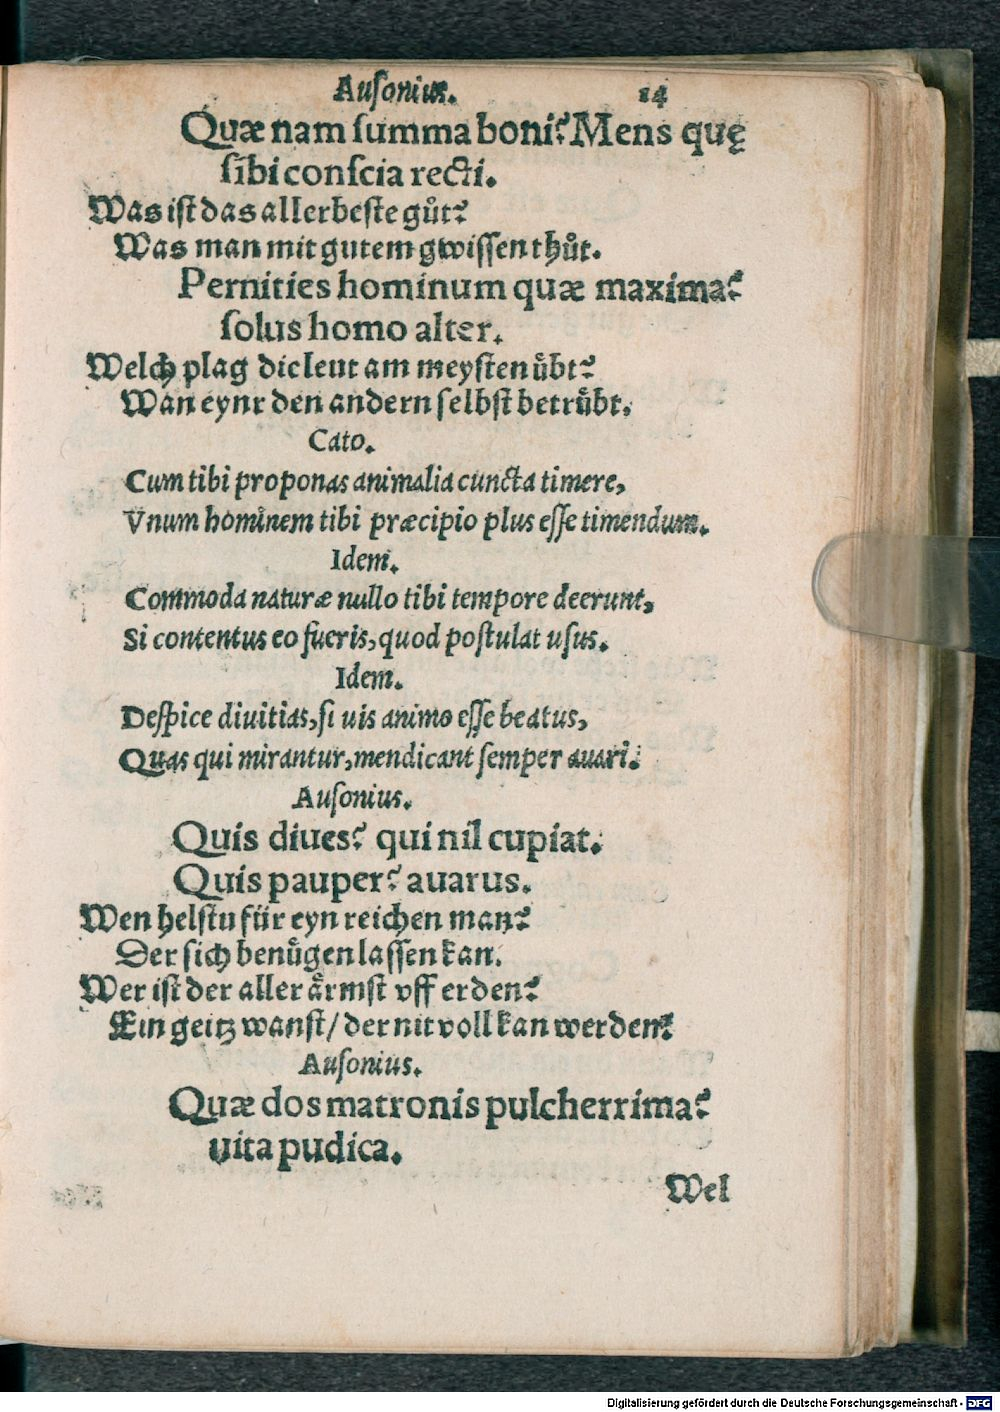 Auſonius. 14
Quæ nam ſumma boni? Mens quę
ſibi conſcia recti.
Was iſt das allerbeſte gůt?
Was man mit gutem gwiſſen thůt.
Pernities hominum quæ maxima?
ſolus homo alter.
Welch plag die leut am meyſten uͤbt?
Wan eynr den andern ſelbſt betruͤbt.
Cato.
Cum tibi proponas animalia cuncta timere,
Vnum hominem tibi præcipio plus eſſe timendum.
Idem.
Commoda naturæ nullo tibi tempore deerunt,
Si contentus eo fueris, quod poſtulat uſus.
Idem.
Deſpice diuitias, ſi uis animo eſſe beatus,
Quas qui mirantur, mendicant ſemper auari.
Auſonius.
Quis diues? qui nil cupiat.
Quis pauper? auarus.
Wen helſtu für eyn reichen man?
Der ſich benuͤgen laſſen kan.
Wer iſt der aller aͤrmſt vff erden?
Ein geitz wanſt/ der nit voll kan werden?
Auſonius.
Quæ dos matronis pulcherrima?
uita pudica.
Wel
Digitalisierung gefördert durch die Deutsche Forschungsgemeinschaft - DFG